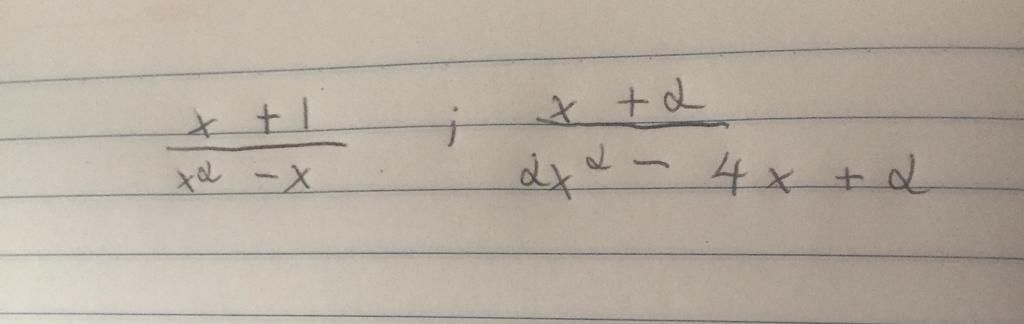 x + 1 ; x + 2
x² - x 2x² - 4x + 2